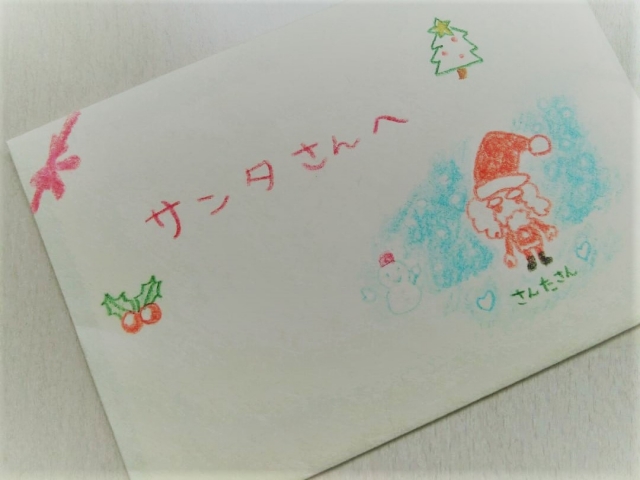 サンタさんへ
さんたさん